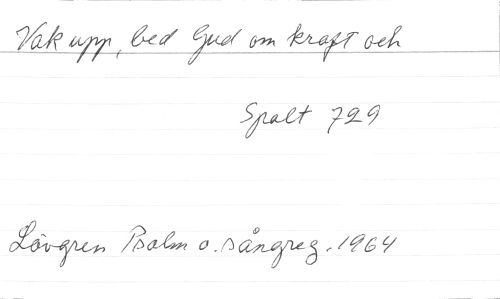 Vak upp, bed Gud om kraft och
Spalt 729
Lövgren Psalm o. sångreg. 1964